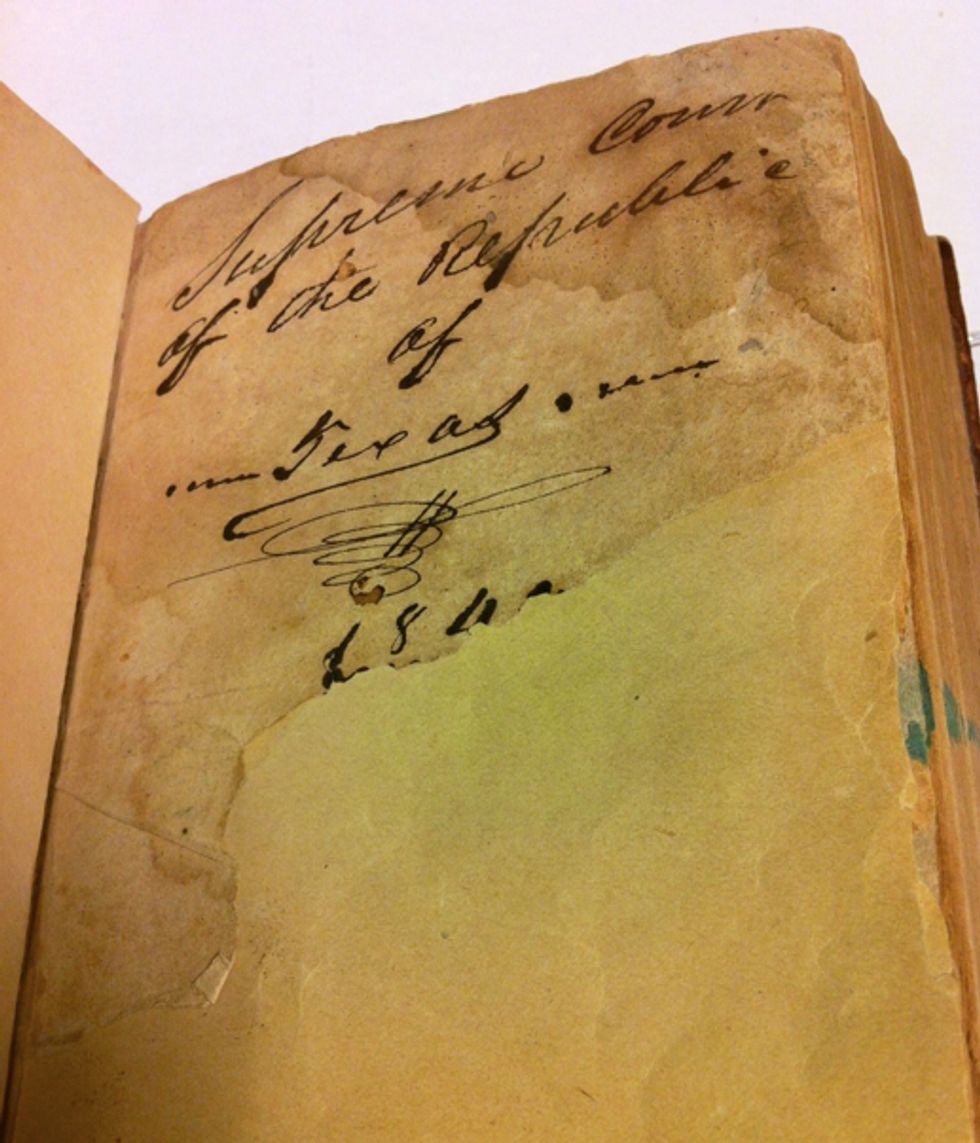 Supreme Court
of the Republic
of
Texas